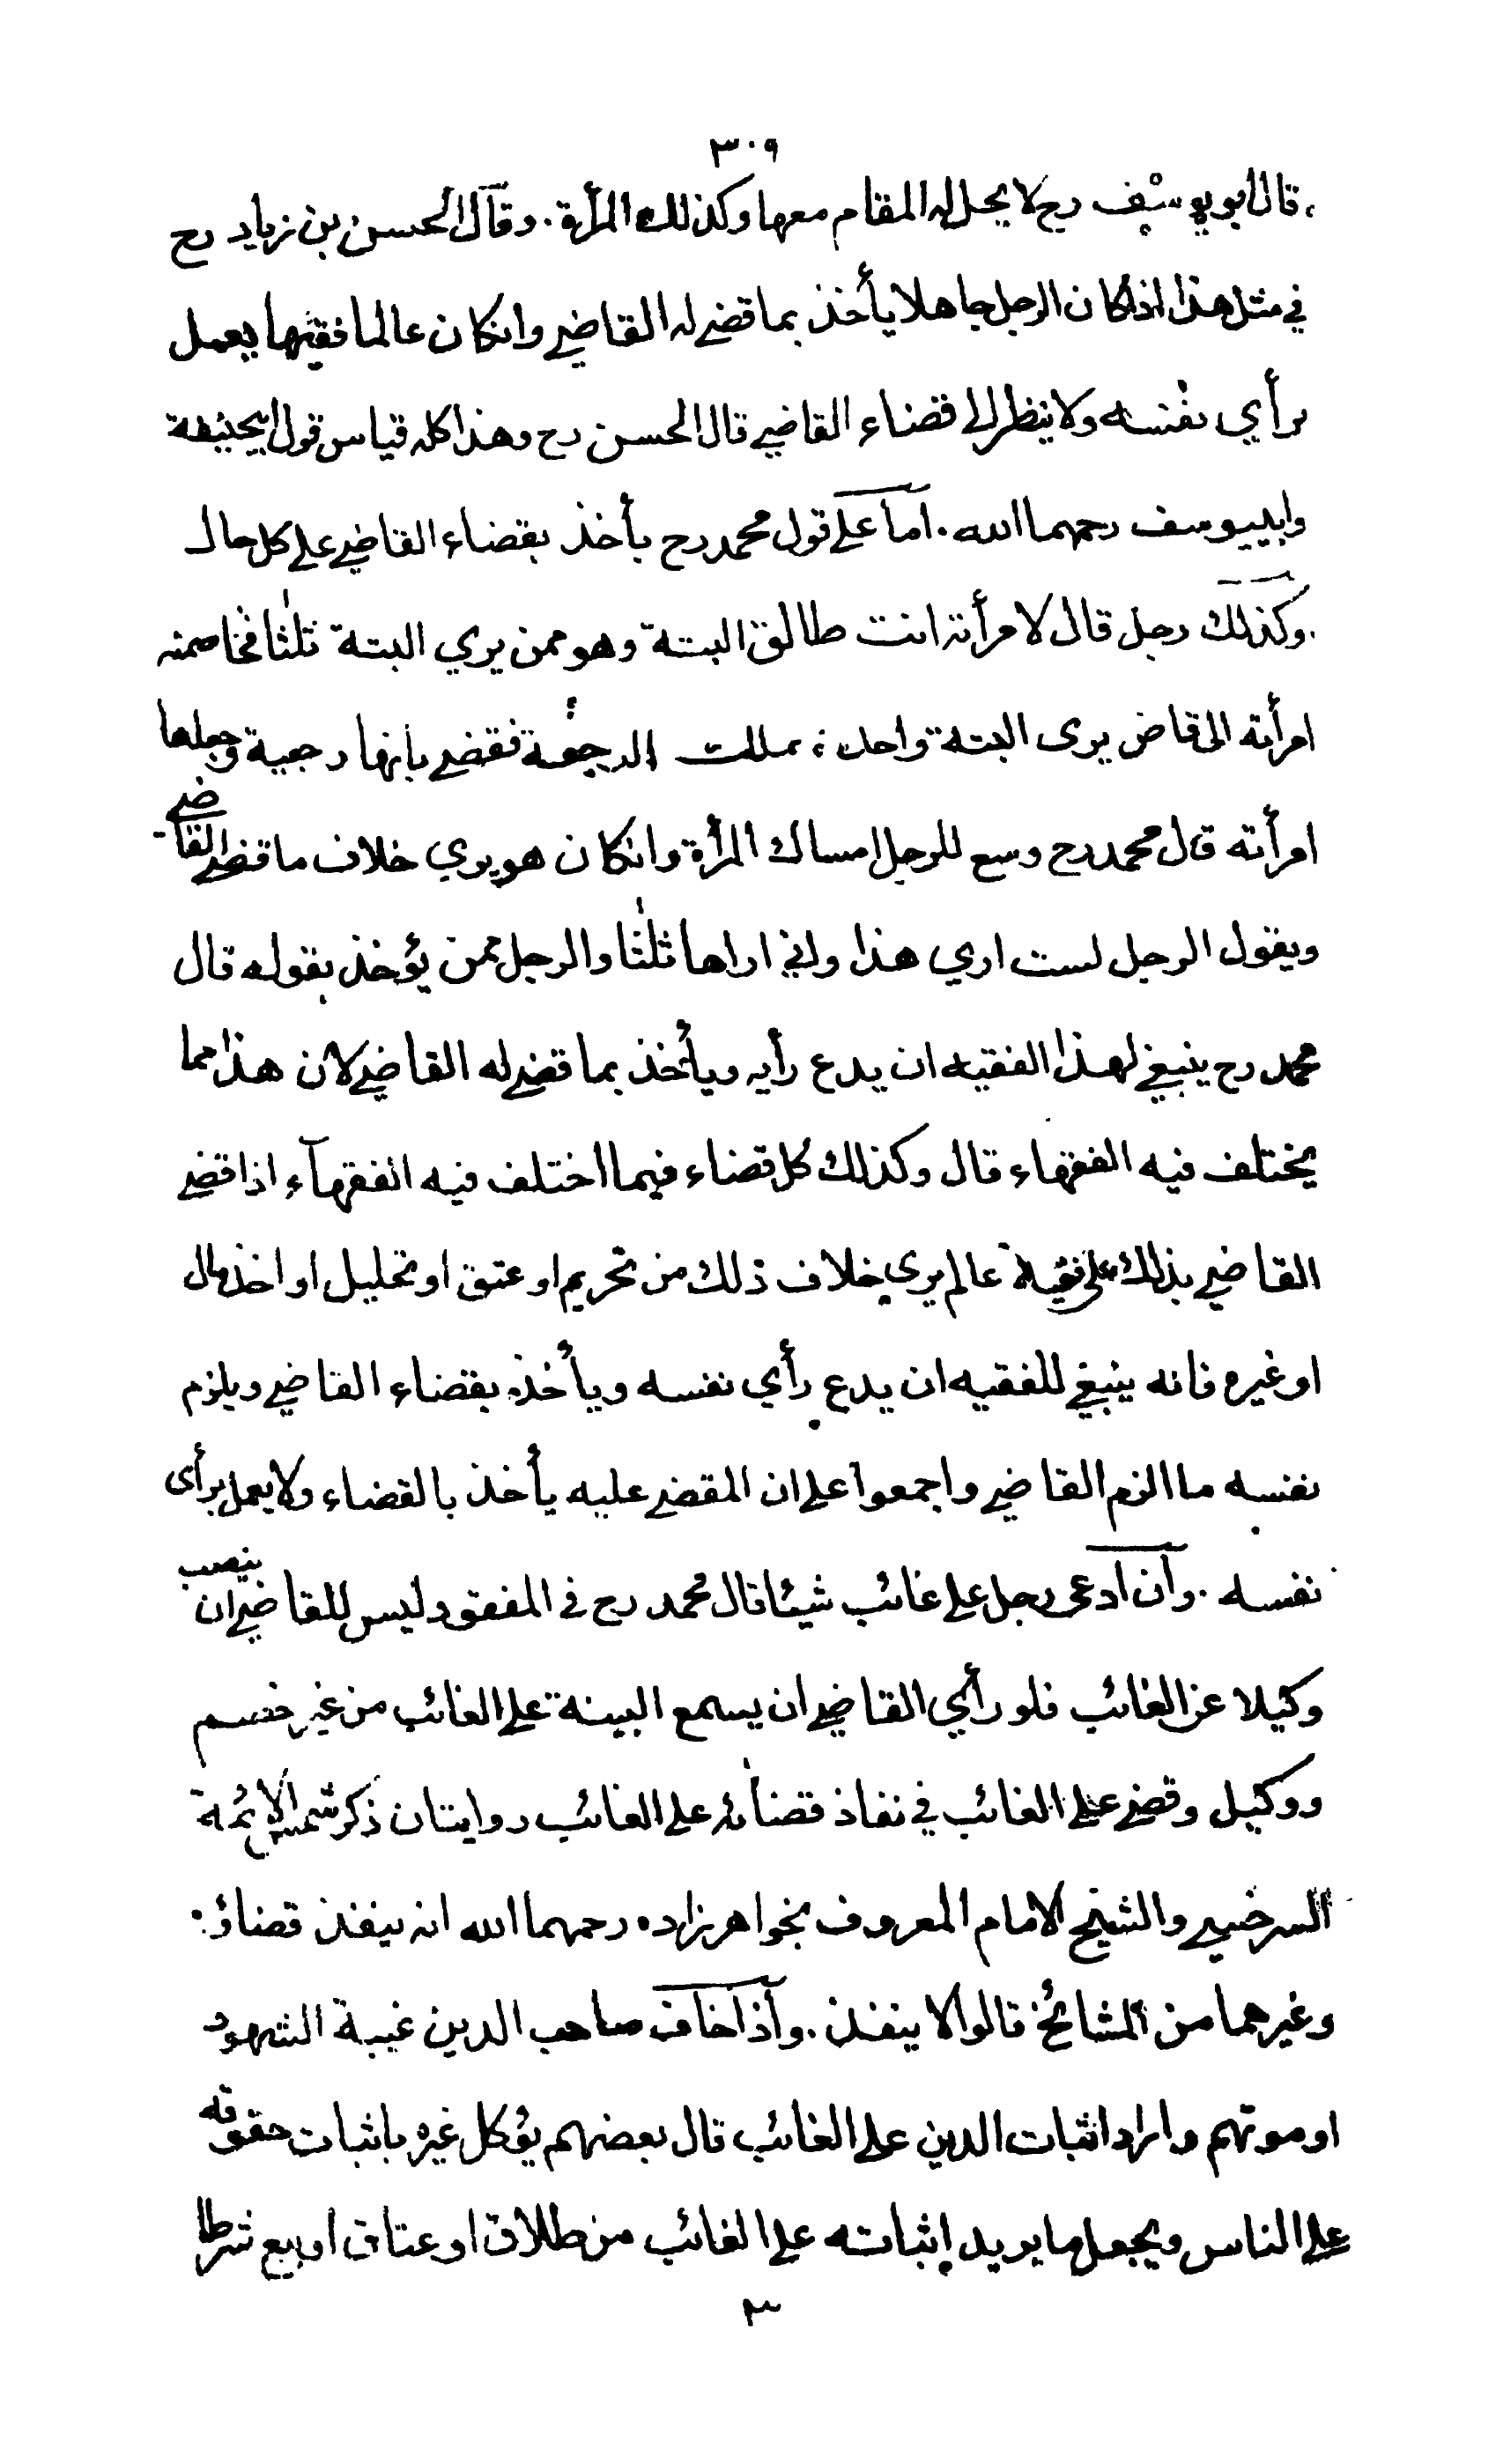 ٣٠٩
قال ابو يوسف رح لا يحل له المقام معها وكذلك المرأة . وقال الحسن بن زياد رح
في مثل هذا اذا كان الرجل جاهلا يأخذ بما قضے له القاضي وانكان عالما فقيها يعمل
برأي نفسه ولا ينظر الى قضاء القاضي قال الحسن رح وهذا كله قياس قول ابيحنيفة
وابييوسف رحمهما الله . اما علے قول محمد رح يأخذ بقضاء القاضي علے كل حال
. وكذلك رجل قال لامرأته انت طالق البتة وهو ممن يري البتة ثلثا فخاصمته
امرأته الى قاض يرى البتة واحدة يملك الرجعة فقضے بانها رجعية وجعلها
امرأته قال محمد رح وسع للرجل امساك المرأة وانكان هو يري خلاف ما قضے القاضے
ويقول الرجل لست اري هذا واني اراها ثلثا والرجل ممن يؤخذ بقوله قال
محمد رح ينبغي لهذا الفقيه ان يدع رأيه ويأخذ بما قضے له القاضي لان هذا مما
يختلف فيه الفقهاء قال وكذلك كل قضاء فيما اختلف فيه الفقهاء اذا قضے
القاضي بذلك على فقيه عالم يري خلاف ذلك من تحريم او عتق او تحليل او اخذ مال
او غيره فانه ينبغي للفقيه ان يدع رأي نفسه ويأخذ بقضاء القاضي ويلزم
نفسه ما الزم القاضي واجمعوا علے ان المقضے عليه يأخذ بالقضاء ولا يعمل برأى
نفسه . وان ادعى رجل علے غائب شيئا قال محمد رح في المفقود ليس للقاضي ان ينصب
وكيلا عن الغائب فلو رأي القاضي ان يسمع البينة علے الغائب من غير خصم
ووكيل وقضے علے الغائب في نفاذ قضائه علے الغائب روايتان ذكر شمس الائمة
السرخسي والشيخ الامام المعروف بخواهرزاده رحمهما الله انه ينفذ قضاؤه
وغيرهما من المشائخ قالوا لا ينفذ . واذا خاف صاحب الدين غيبة الشهود
او موتهم واراد اثبات الدين علے الغائب قال بعضهم يؤكل غيره باثبات حقوقه
علے الناس ويجعل ما يريد اثباته علے الغائب من طلاق او عتاق او بيع شرطا